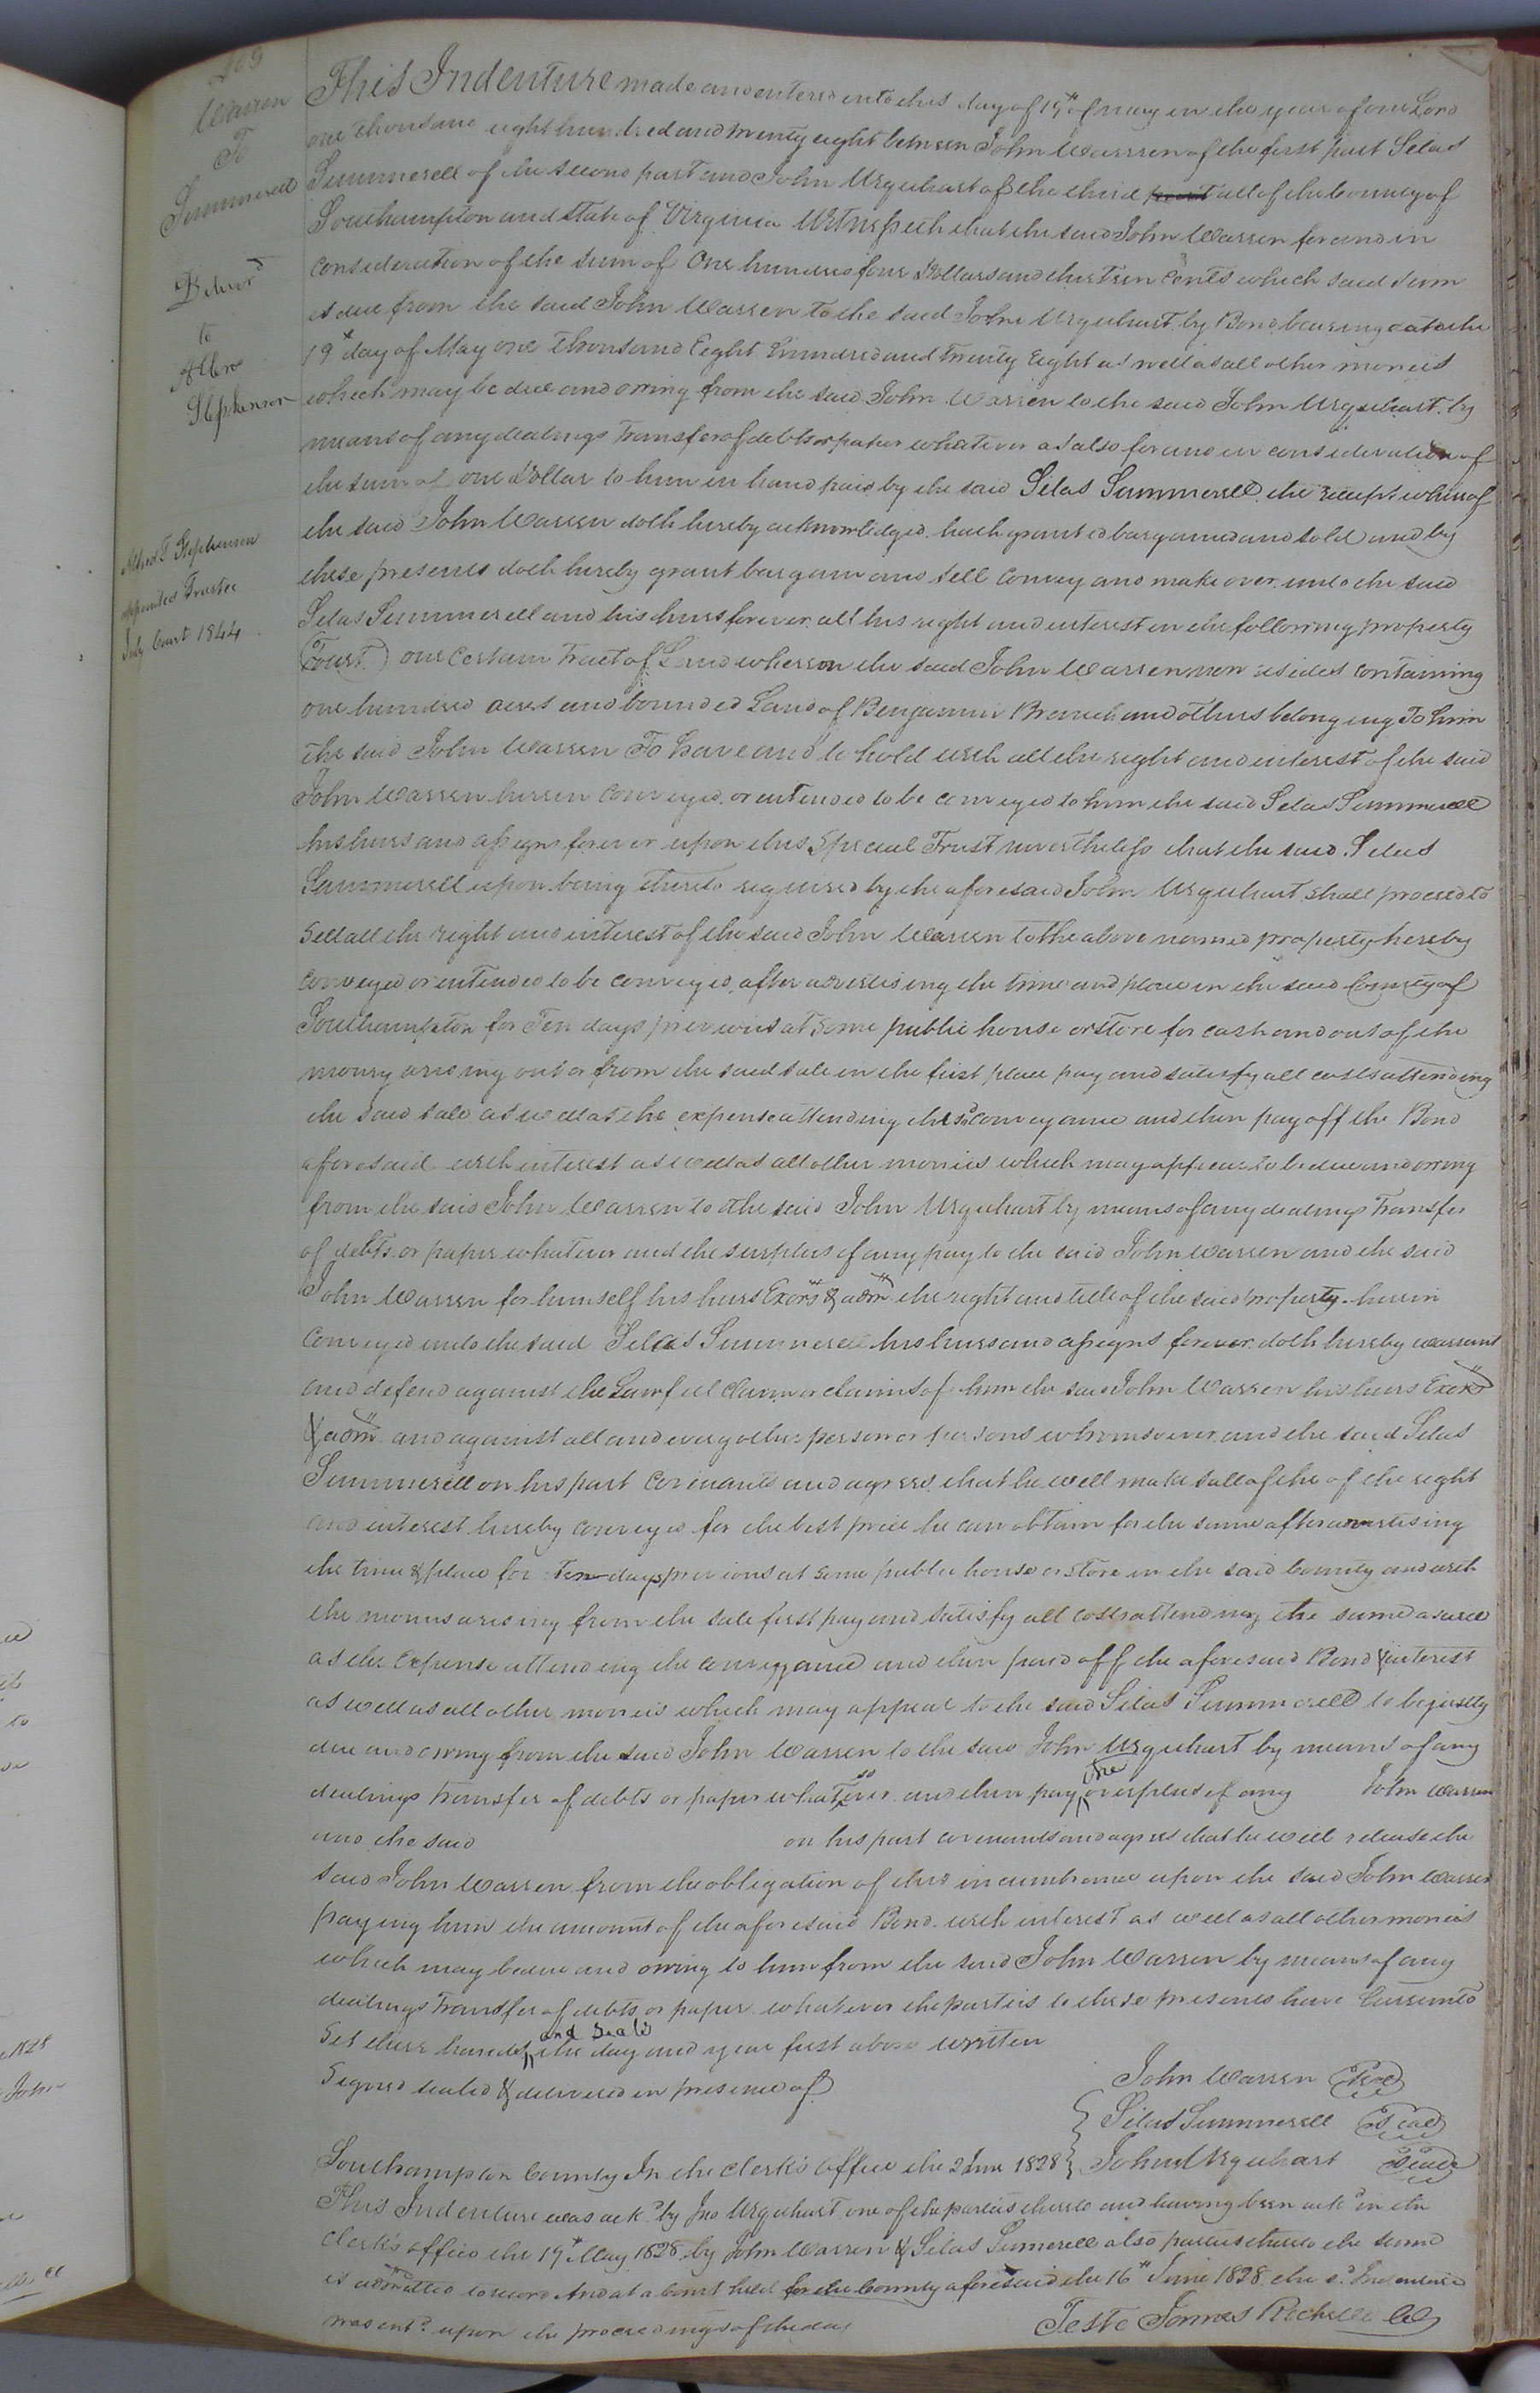 Warren
To
Summerell
Deliver^d
to
Stephenson
Alfred T Stephenson
appointed Trustee
July Court 1844
This Indenture made and entered into this day of 19th of may in the year of our Lord
one thousand eight hundred and twenty eight between John Warren of the first part Silas
Summerell of the second part and John Urquhart of the third part all of the County of
Southampton and State of Virginia Witnesseth that the said John Warren for and in
consideration of the sum of One hundred four Dollars and thirteen Cents which said sum
is due from the said John Warren to the said John Urquhart by Bond bearing date the
19th day of May one thousand Eight hundred and twenty Eight as well as all other monies
which may be due and owing from the said John Warren to the said John Urquhart by
means of any dealings transfer of debts or paper whatever as also for and in consideration of
the sum of one Dollar to him in hand paid by the said Silas Summerell the receipt whereof
the said John Warren doth hereby acknowledged hath granted bargained and sold and by
these presents doth hereby grant bargain and sell convey and make over unto the said
Silas Summerell and his heirs forever all his right and interest in the following property
(Towit) one Certain Tract of Land whereon the said John Warren now resides containing
one hundred acres and bounded Land of Benjamin Branch and others belonging To him
the said John Warren To have and to hold with all the right and interest of the said
John Warren herein conveyed or intended to be conveyed to him the said Silas Summerell
his heirs and assigns forever upon this Special Trust nevertheless that the said Silas
Summerell upon being thereto required by the aforesaid John Urquhart shall proceed to
Sell all the right and interest of the said John Warren to the above named property hereby
conveyed or intended to be conveyed after advertising the time and place in the said County of
Southampton for Ten days previous at some public house or store for cash and out of the
money arising out or from the said sale in the first place pay and satisfy all costs attending
the said sale as well as the expense attending this sd conveyance and then pay off the Bond
aforesaid with interest as well as all other monies which may appear to be due and owing
from the said John Warren to the said John Urquhart by means of any dealings Transfer
of debts or paper whatever and the surplus if any pay to the said John Warren and the said
John Warren for himself his heirs Exors & adm the right and title of the said property herein
Conveyed unto the said Silas Summerell his heirs and assigns forever doth hereby warrant
and defend against the Lawful Claim or claims of him the said John Warren his heirs Exors
& adm and against all and every other person or persons whomsoever and the said Silas
Summerell on his part covenants and agrees that he will make sale of the of the right
and interest hereby conveyed for the best price he can obtain for the same after advertising
the time & place for Ten days previous at some public house or store in the said County and with
the monies arising from the sale first pay and satisfy all costs attending the same as well
as the Expense attending the conveyance and then paid off the aforesaid Bond & interest
as well as all other monies which may appear to the said Silas Summerell to be justly
due and owing from the said John Warren to the said John Urquhart by means of any
dealings transfer of debts or paper whatsoever and then pay the overplus if any John Warren
and the said on his part covenants and agrees that he will release the
said John Warren from the obligation of this incumbrance upon the said John Warren
paying him the amount of the aforesaid Bond with interest as well as all other monies
which may be due and owing to him from the said John Warren by means of any
dealings Transfer of debts or paper whatever the parties to these presents have hereunto
Set their hands and Seals the day and year first above written
Signed sealed & delivered in presence of
John Warren Seal
Silas Summerell Seal
John Urquhart Seal
Southampton County In the Clerk's Office the 2 June 1828
This Indenture was ackd by Jno Urquhart one of the parties thereto and having been ackd in the
Clerk's office the 19th May 1828 by John Warren & Silas Sumerell also parties thereto the same
is admitted to record And at a Court held for the County aforesaid the 16th June 1828 the sd Indenture
was entd upon the proceedings of the day
Teste James Rochelle CC